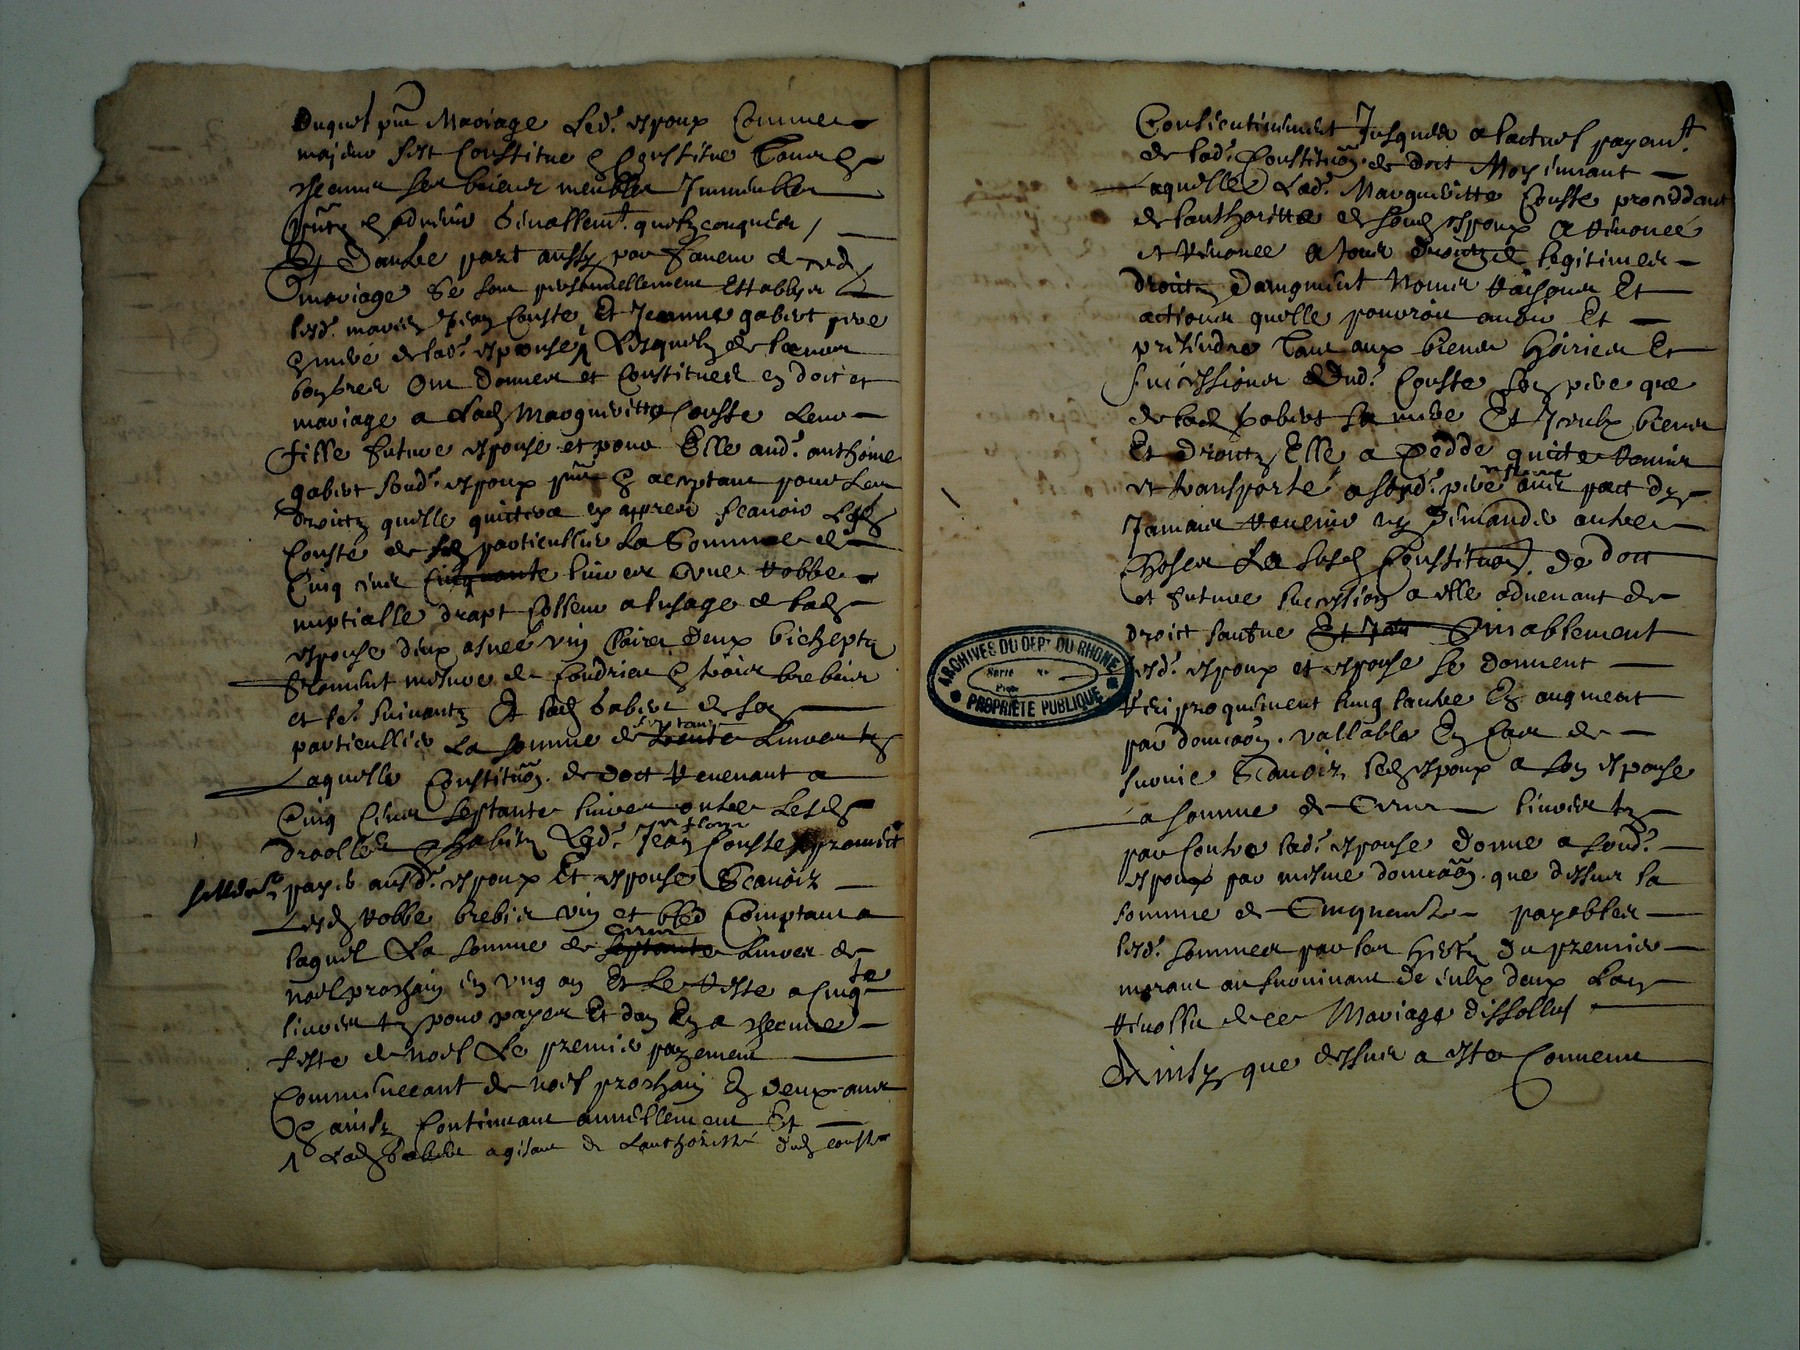 Duquel pnt Mariage Led. espoux Comme
majeur sest Constitue & Constitue Tous &
checuns ses biens meubles Immeubles
pnts & advenir Gēnallemt. quelzconques /
Et Daultre part aussy par faveur de ced
mariage Se sont personnellement Establys
lesd. mariés Jean Couste, Et Jeanne gabert pere
& mere de lad. espouse / Lesquelz de leurs
bongrés Ont Donnés et Constitués en doit et
mariage a Lad Margueritte Couste Leur
fille future espouse et pour Elle aud. anthoine
gabert sond. espoux pnt & aceptant pour Les
droictz quelle quictera cy apprés scavoir Led
Couste de son particullier La Somme de
Cinq cens cinquante livres Une Robbe
nuptialle drapt colleur a lusage de lad
espouse deux asnées vin Clairet Deux bicheptz
froment mesure de Condrieu & trois brebeis
et les suivantz Et lad Gabert de son
particullier La somme de septante trente Livres tz
Laquelle Constituōn. de doct Revenant a
Cinq Cens septante livres oultre Lesd
Led. Jean Couste promect
payer ausd. espoux Et espouse Scavoir
Lesd Robbe brebis vin et bled Comptant a
La somme de Cens septante Livres de
noel prochain en ung an Et Le Reste a Cinqte
livres tz pour payes Et dan En a checune
feste de Noel Le premier payement
Commenceant de noel prochain En deux ans
& ainsy Continuant annuellement Et
1 Lad Gabert agisant de Lauthoritté dud couste
Consecutivement Jusques a lactuel payemt.
de lad. Constituōn de doct Moyenant
Laquelle Lad. Margueritte Couste proceddant
de lauthoritté de sond espoux A Renoncé
et Renonce a tous droictz de legitimes
droictz Daugment Noms Raisons Et
actions quelle pourroit avoir Et
prétendre Tant aux biens hoiries Et
successions Dud. Couste son pere que
de lad Gabert sa mere Et Jceulx biens
Et droictz Elle a Cedde quicte Remis
et transporté a sond. pere avec pact de
Jamais Revenir ny Demander aultre
Choses La susd Constituōn. de doct
et future succession a elle advenant de
droict sauve Et Jan Semablement
lesd. espoux et espouse se donnent
Reciproquement lung laultre En augment
par donnaōn. vallable En Cas de
survie Scavoir led espoux a son espouse
La somme de Cens livres tz
par Contre lad. espouse donne a sond.
espoux par mesme donnaōn. que dessus la
somme de Cinquante payables
lesd. sommes par les hers du premier
morant au survivant de eulx deux Las
Revollu de ce Mariage dissollu
Ainsy que dessus a este Convenu
ARCHIVES DU DEPT DU RHONE
Serie No
PROPRIÉTÉ PUBLIQUE